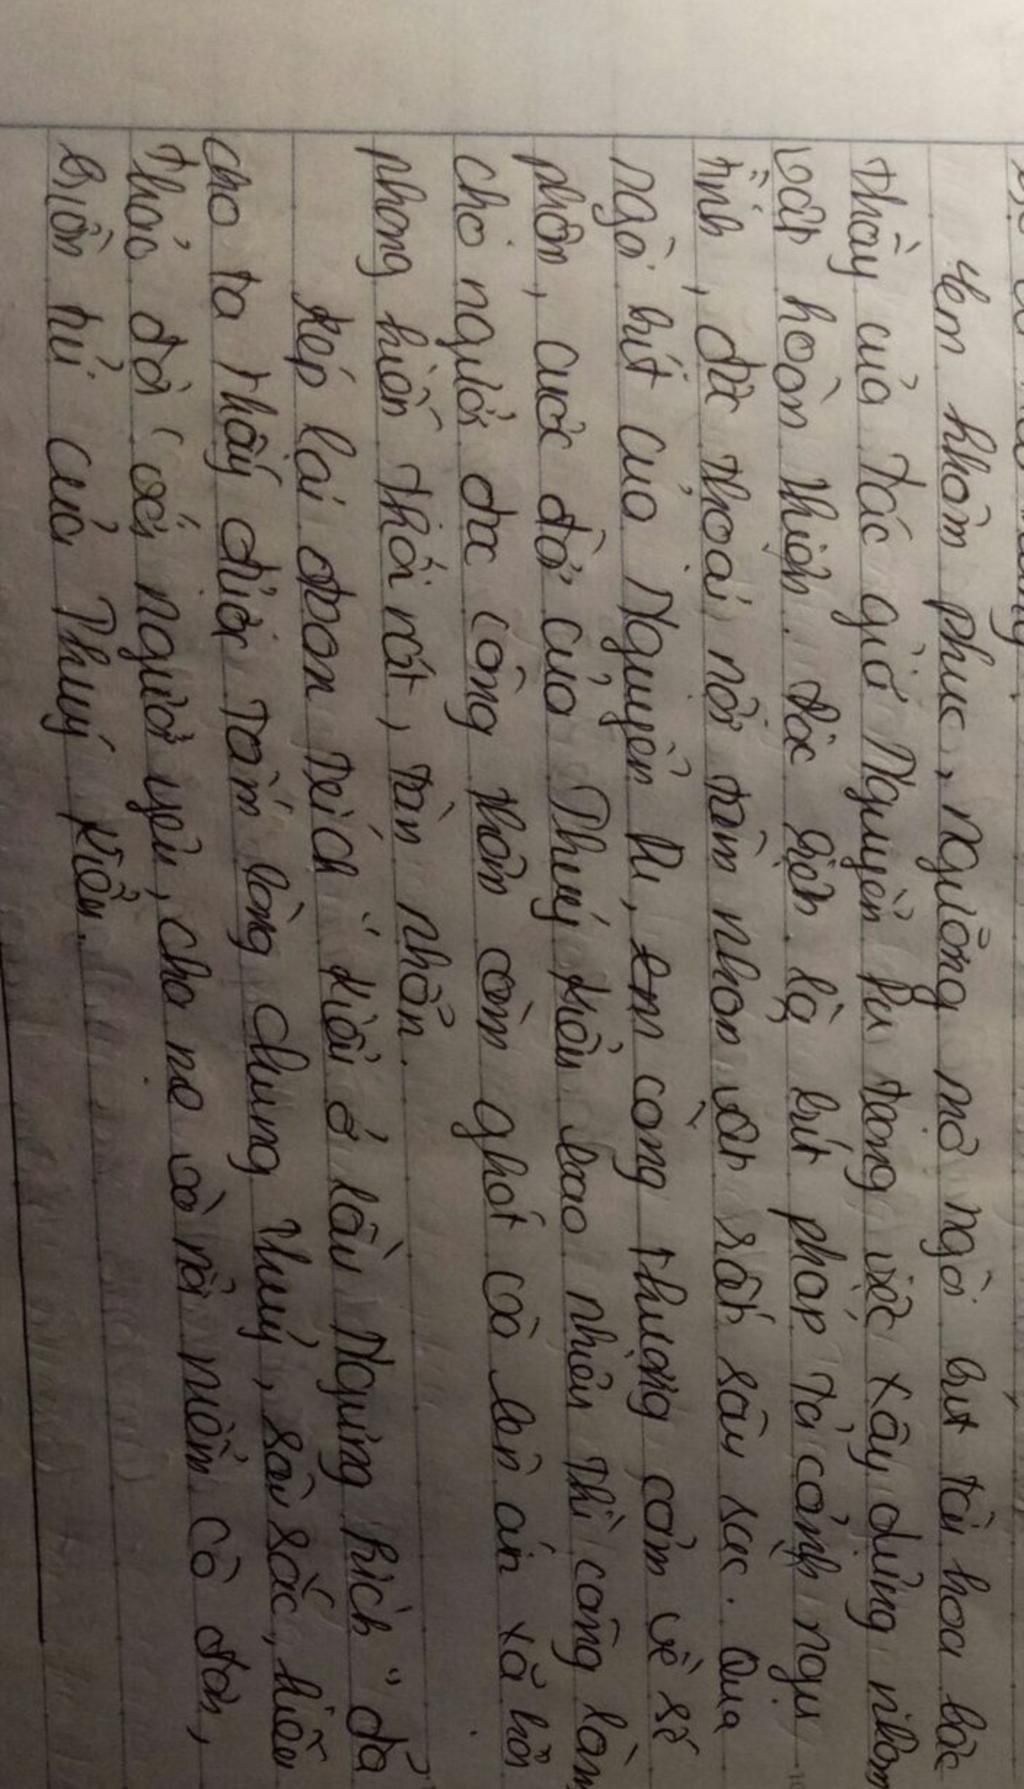 Yem khâm phục, ngưỡng mộ ngòi bút tài hoa bậc
thầy của tác giả Nguyễn Du trong việc xây dựng nhân
vật hoàn thiện. Đặc biệt là bút pháp tả cảnh ngụ
tình, độc thoại nội tâm nhân vật rất sâu sắc. Qua
ngòi bút của Nguyễn Du, em càng thương cảm về số
phận, cuộc đời của Thuý Kiều bao nhiêu thì càng làm
cho người đọc công thêm căm ghét và lên án xã hội
phong kiến thối nát, tàn nhẫn.
Kép lại đoạn trích "Kiều ở lầu Ngưng Bích" đã
cho ta thấy được tấm lòng chung thuỷ, sâu sắc, hiếu
thảo đối với người yêu, cha mẹ và nỗi niềm cô đơn,
buồn tủi của Thuý Kiều.